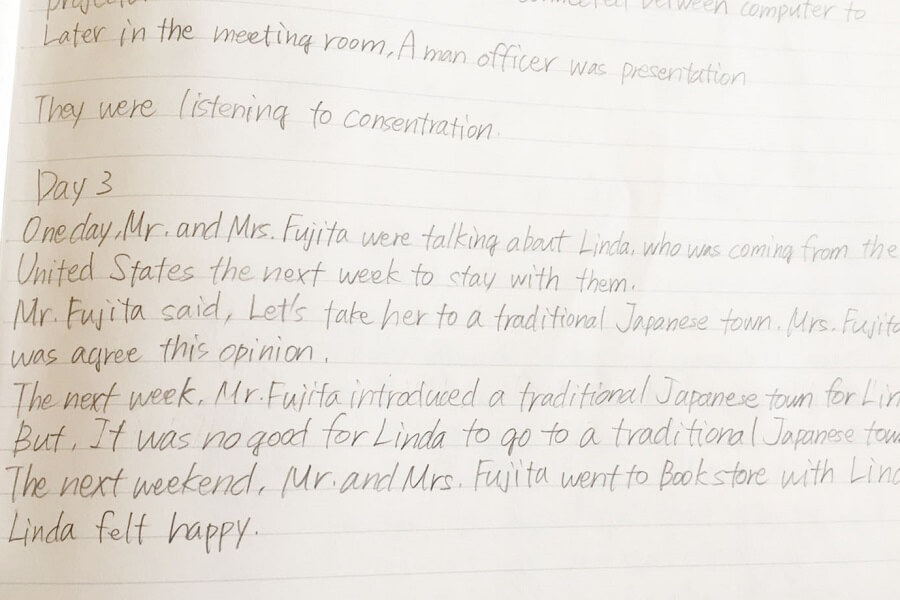 connected between computer to
Later in the meeting room, A man officer was presentation
They were listening to consentration.
Day 3
One day, Mr. and Mrs. Fujita were talking about Linda, who was coming from the
United States the next week to stay with them.
Mr. Fujita said, Let's take her to a traditional Japanese town. Mrs. Fujita
was agree this opinion.
The next week, Mr. Fujita introduced a traditional Japanese town for
But, It was no good for Linda to go to a traditional Japanese
The next weekend, Mr. and Mrs. Fujita went to Book store with
Linda felt happy.